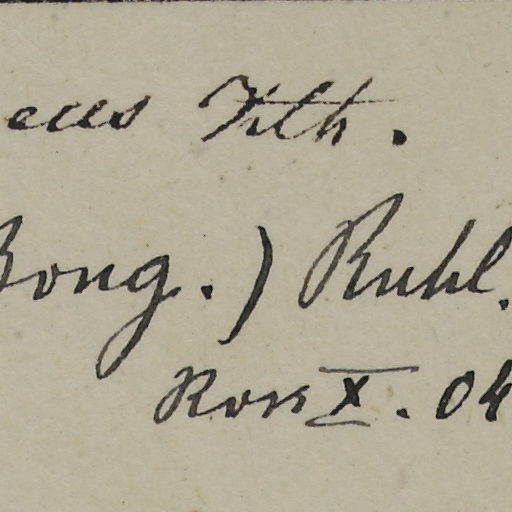 eus Vilh.
Bong.) Ruhl.
Ross X. 04